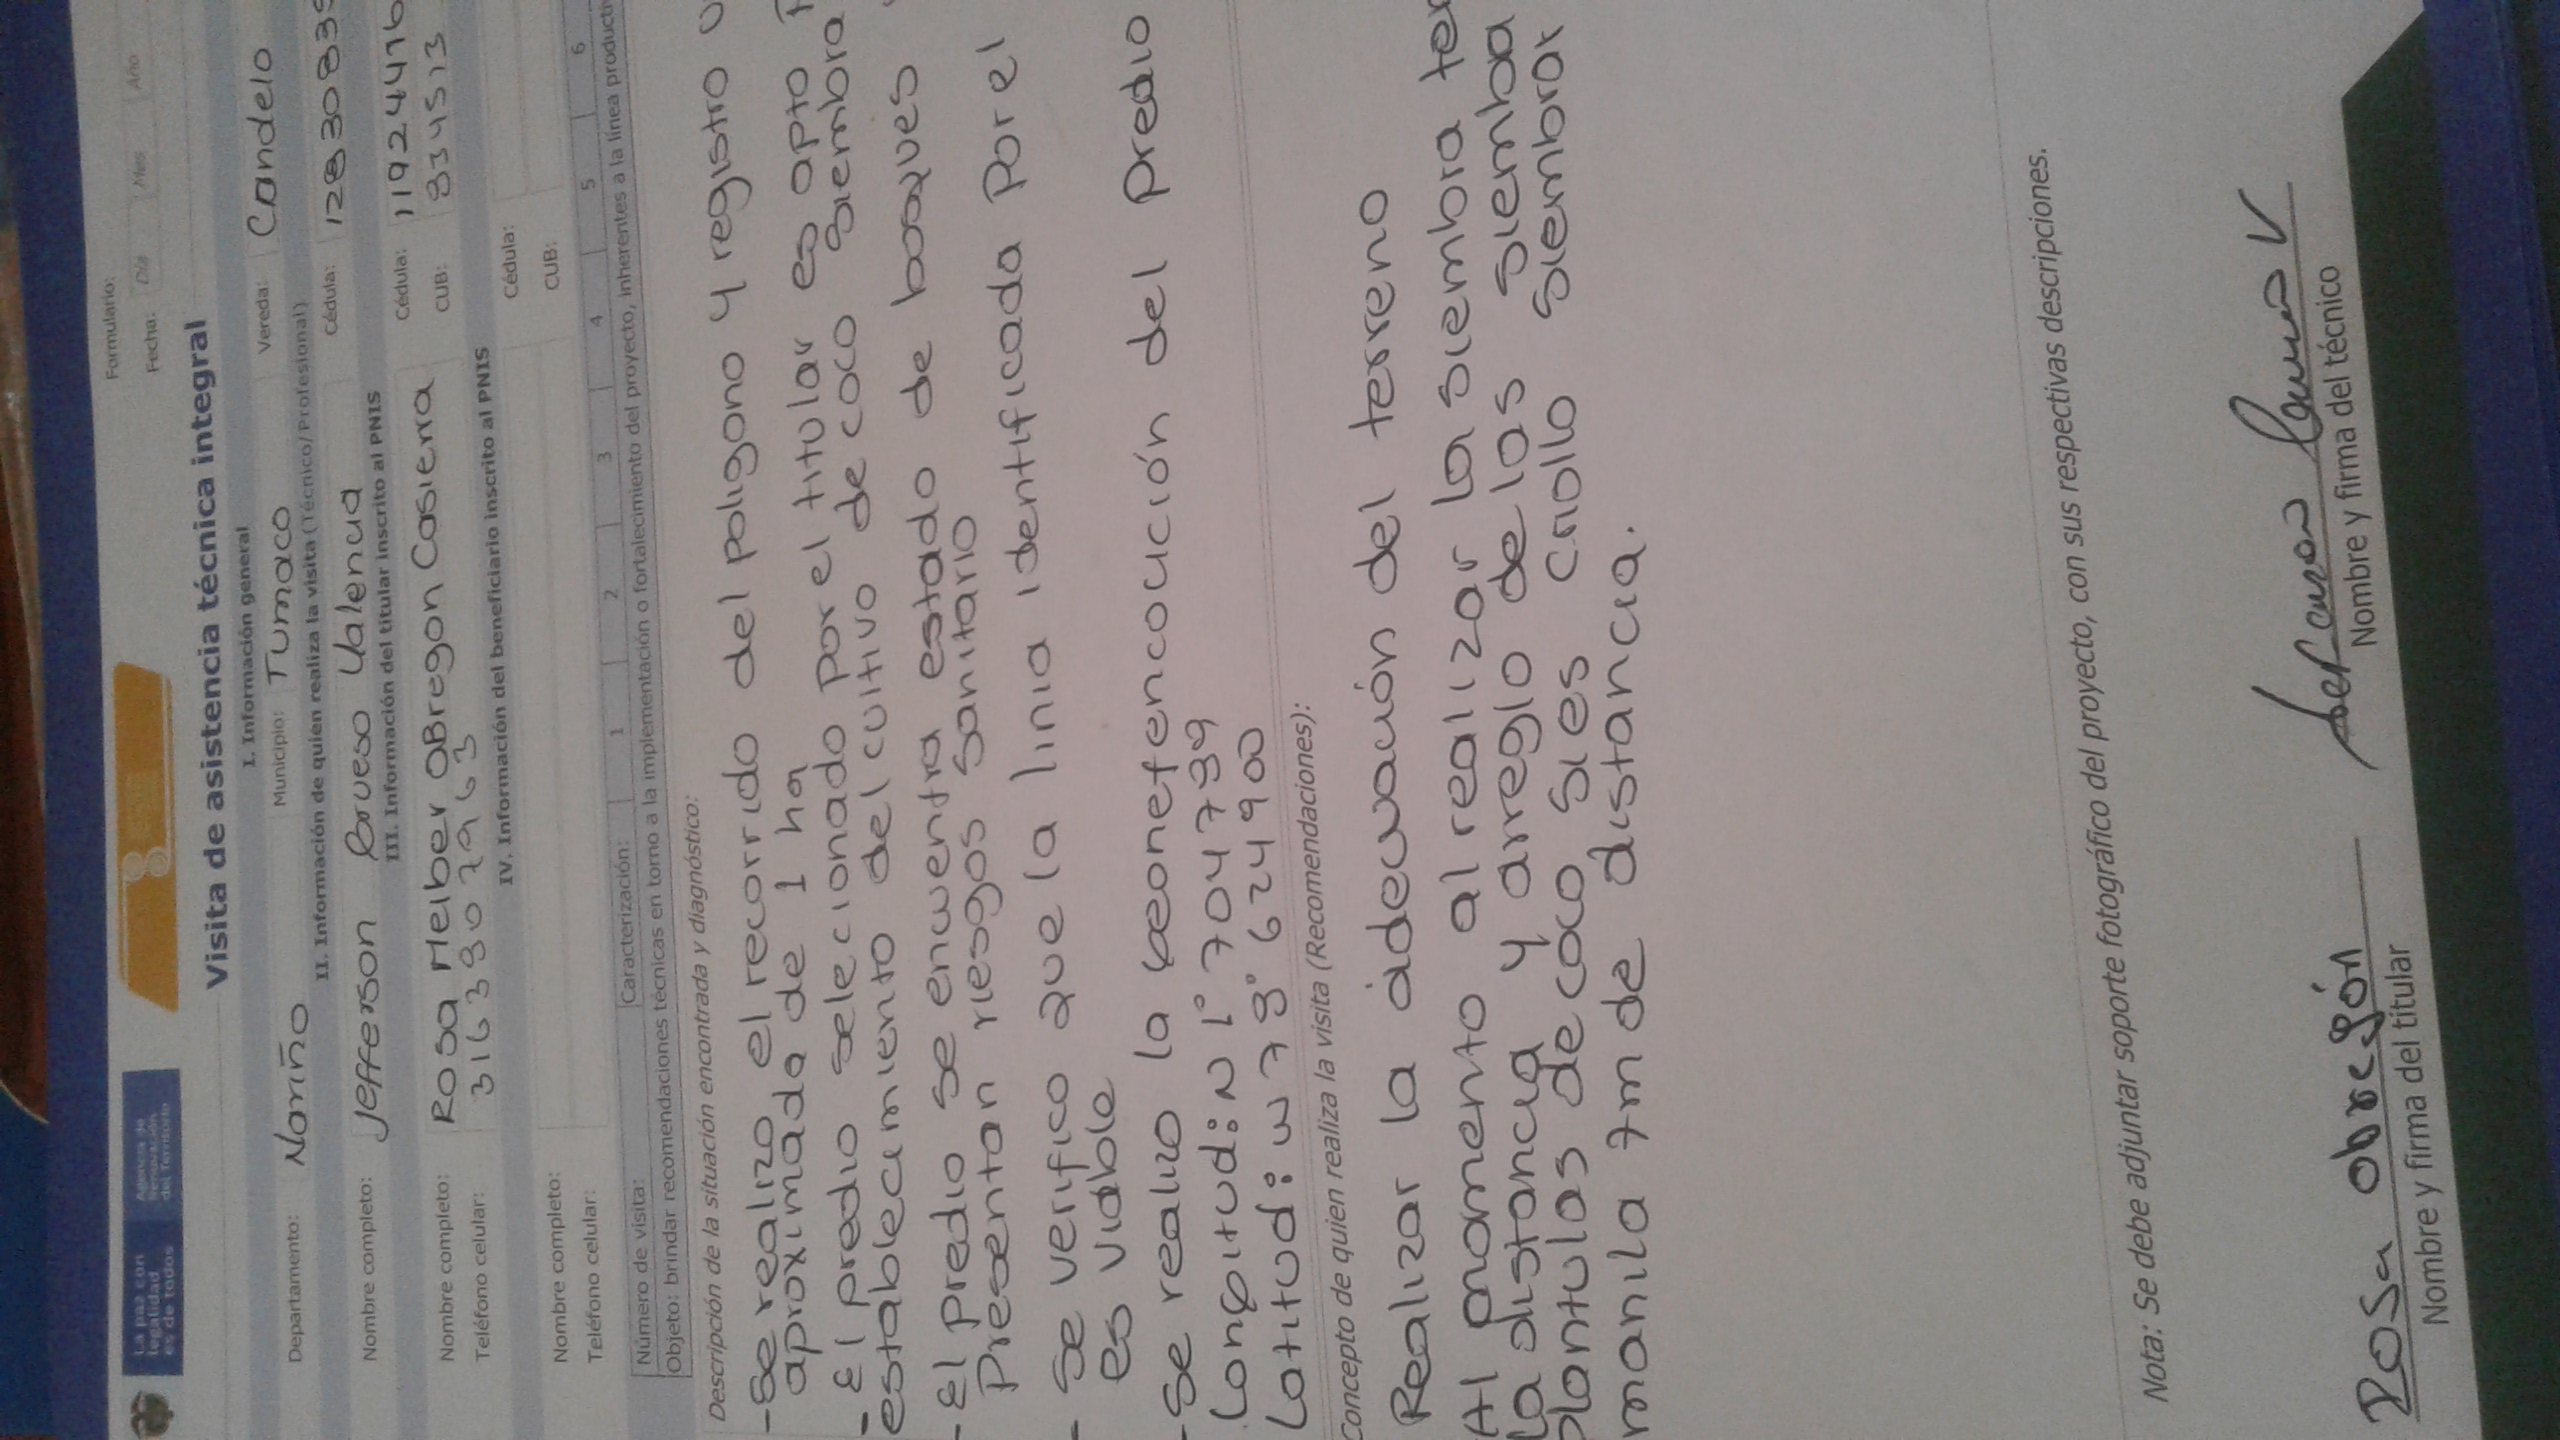 La paz con legalidad es de todos
Agencia de Renovación del Territorio
Formulario:
Fecha: Día Mes Año
Visita de asistencia técnica integral
I. Información general
Departamento: Nariño Municipio: Tumaco Vereda: Candelo
II. Información de quien realiza la visita (Técnico/Profesional)
Nombre completo: Jefferson Brueso Valencia Cédula:
III. Información del titular inscrito al PNIS
Nombre completo: Rosa Helber OBregon Casierra Cédula:
Teléfono celular: CUB:
IV. Información del beneficiario inscrito al PNIS
Nombre completo: Cédula:
Teléfono celular: CUB:
Número de visita: Caracterización: 1 2 3 4 5 6
Objeto: brindar recomendaciones técnicas en torno a la implementación o fortalecimiento del proyecto, inherentes a la línea
Descripción de la situación encontrada y diagnóstico:
- Se realizo el recorrido del poligono y registro
aproximado de 1 ha
- El predio selecionado por el titular es apto
establecimiento del cultivo de coco siembra
- El predio se encuentra estado de bosques
Presentan riesgos sanitario
- Se verifico que la linia identificada por el
es viable
- Se realizo la del predio
Longitud: N 1° 704739
Latitud: W 78° 624900
Concepto de quien realiza la visita (Recomendaciones):
Realizar la adecuación del terreno
Al momento al realizar la siembra
La distancia y arreglo de las siembra
plantulas de coco si es criollo siembrar
manila 7m de distancia.
Nota: Se debe adjuntar soporte fotográfico del proyecto, con sus respectivas descripciones.
Rosa obregón
Nombre y firma del titular
Nombre y firma del técnico